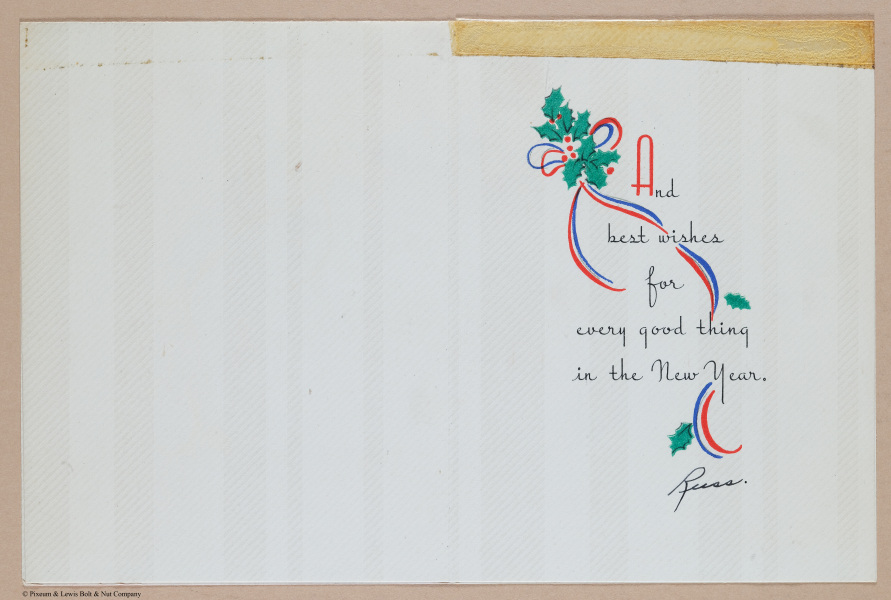 And
best wishes
for
every good thing
in the New Year.
Russ.
© Pixeum & Lewis Bolt & Nut Company